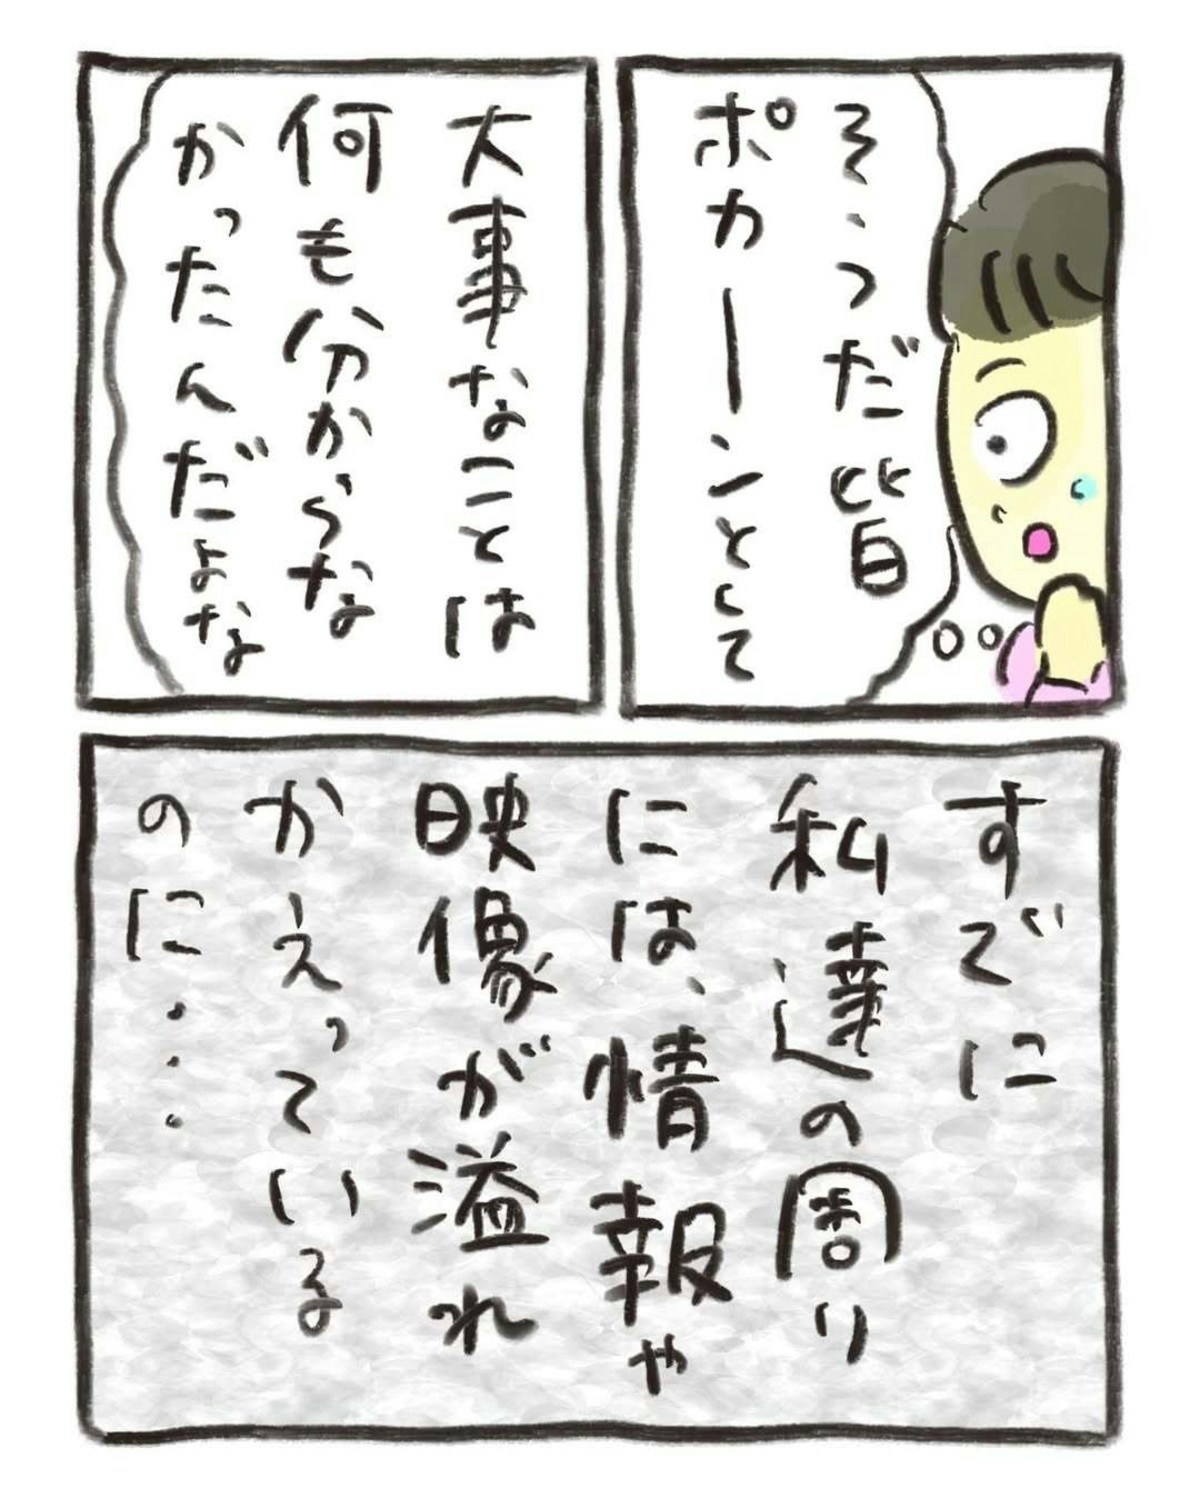 そっだ皆
ポカーンとして
大事なことは
何も分からな
かったんだよな
すでに
私達の周り
には、情報や
映像が溢れ
かえっている
のに・・・